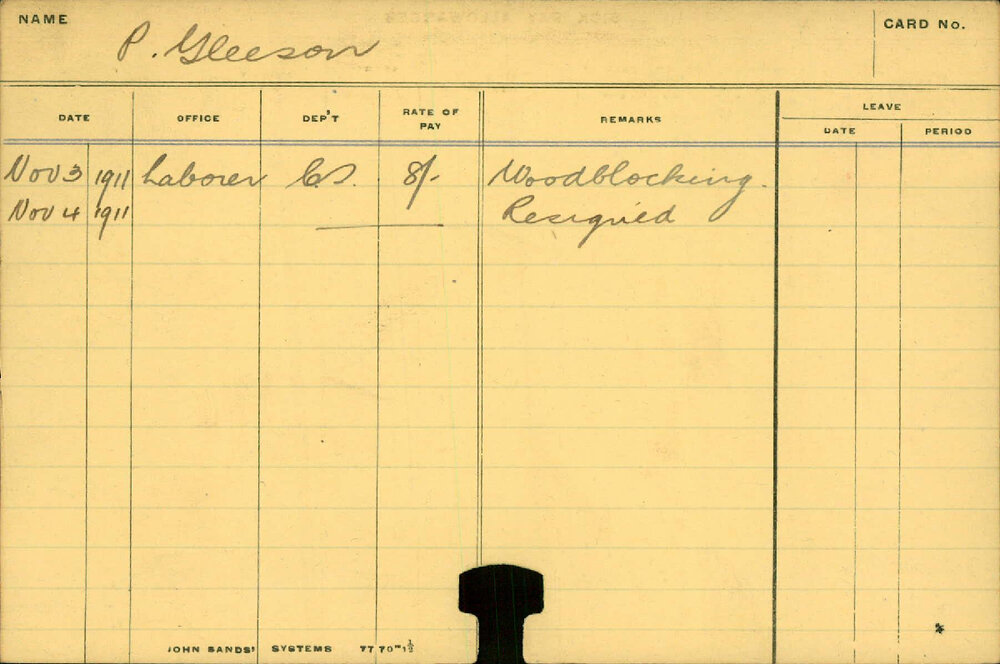 NAME P. Gleeson CARD No.
DATE OFFICE DEP'T RATE OF PAY REMARKS LEAVE
DATE PERIOD
Nov 3 1911 Laborer C.S. 8/- Woodblocking.
Nov 4 1911 Resigned
JOHN SANDS' SYSTEMS